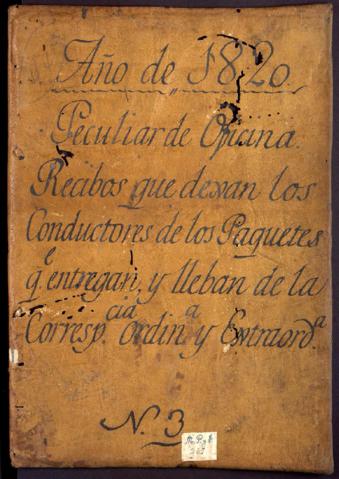 Año de 1820
Peculiar de Oficina.
Recibos que dexan los
Conductores de los Paquetes
q.e entregan, y lleban de la
Corresp.cia ordin.a y Extraord.a
N. 3